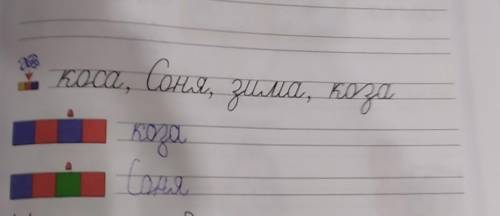 коса, Соня, зима, коза
коза
Соня